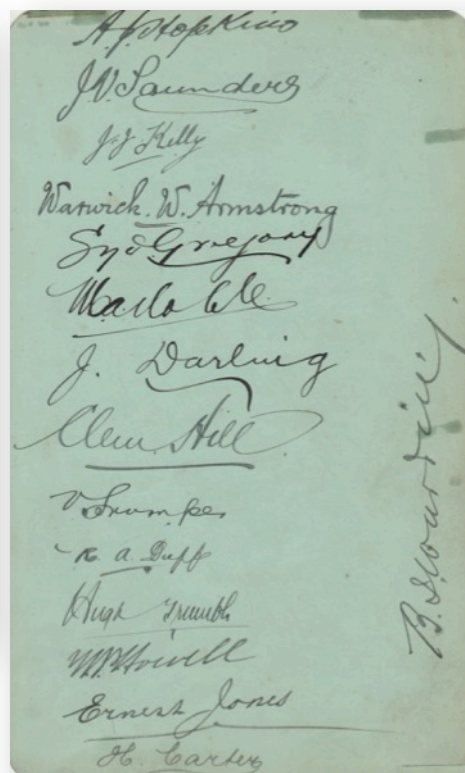 A. J. Hopkins
J. V. Saunders
J. J. Kelly
Warwick. W. Armstrong
Syd Gregory
M. A. Noble
J. Darling
Clem Hill
V Trumper
R. A. Duff
Hugh Trumble
W. P. Howell
Ernest Jones
H. Carter